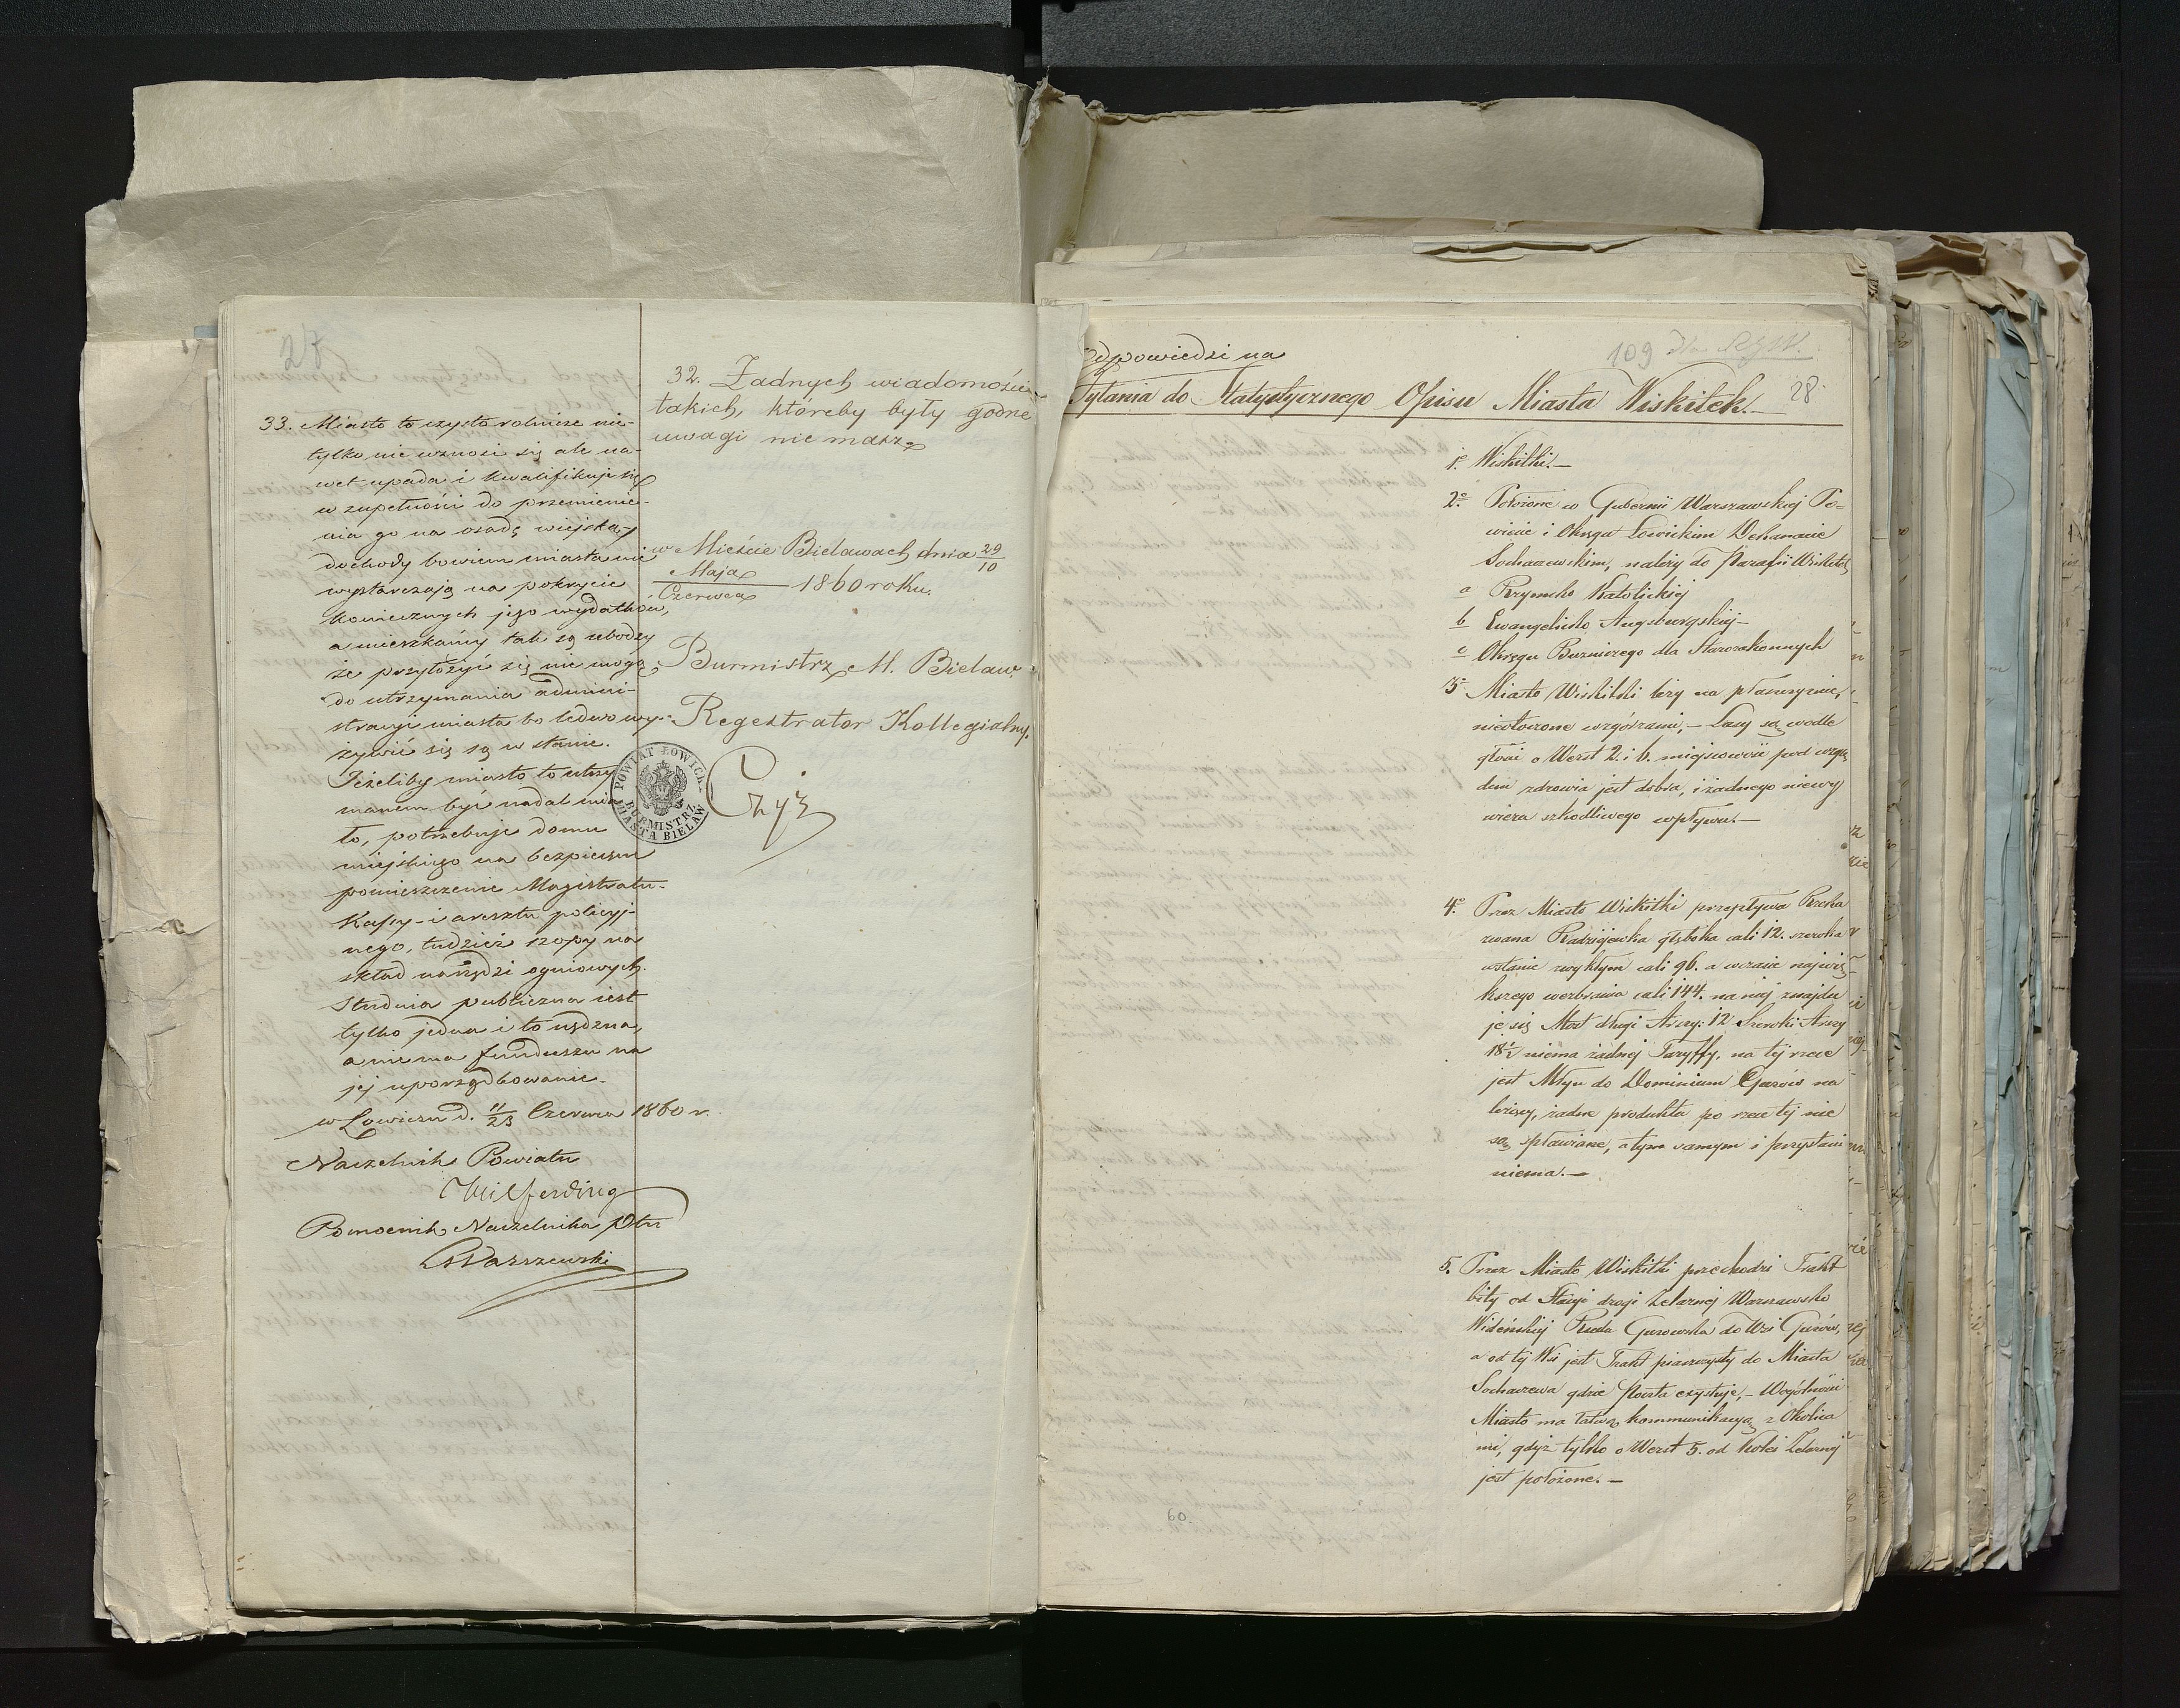 27
33. Miasto to czysto rolnicze nie-
tylko nie wznosi się ale na-
wet upada i kwalifikuje się
w zupełności do przemienie-
nia go na osadę wiejską,
dochody bowiem miasta nie
wystarczają na pokrycie
koniecznych jego wydatków,
a mieszkańcy tak są ubodzy
że przyłożyć się nie mogą
do utrzymania admini-
stracyi miasta bo ledwo wy-
żywić się są w stanie.
Jeżeliby miasto to utrzy
manem być nadal mia
ło, potrzebuje domu
miejskiego na bezpieczne
pomieszczenie Magistratu-
Kassy- i aresztu policyj-
nego, tudzież szopy na
skład narzędzi ogniowych.
Studnia publiczna jest
tylko jedna i to nędzna,
a niema funduszu na
jej uporządkowanie.
w Łowiczu d. 11/23 Czerwca 1860 r.
Naczelnik Powiatu
Hilferding
Pomocnik Naczelnika Ptu
32. Żadnych wiadomości
takich, któreby były godne
uwagi nie masz
w Mieście Bielawach dnia 29/10
Maja/Czerwca 1860 roku.
Burmistrz M. Bielaw.
Regestrator Kollegialny.
Czyż
POWIAT ŁOWICK.
BURMISTRZ
MIASTA BIELAW
109
28
Odpowiedzi na
Pytania do Statystycznego Opisu Miasta Wiskitek.—
1º Wiskitki.—
2º Położone w Gubernii Warszawskiej Po-
wiecie i Okręgu Łowickim Dekanacie
Sochaczewskim, należy do Parafii Wiskitek
a Rzymsko Katolickiej
b Ewangelicko Augsburgskiej—
c Okręgu Bużniczego dla Starozakonnych
3º Miasto Wiskitki leży na płaszczyznie,
nieotoczone wzgórzami,— Lasy są w odle
głości o Werst 2. i 6. miejscowość pod wzglę
dem zdrowia jest dobra, i żadnego niewy
wiera szkodliwego wpływu.—
4º Przez Miasto Wiskitki przepływa Rzeka
zwana Radziejewka głęboka cali 12. szeroka
w stanie zwykłym cali 96. a w czasie najwię
kszego wezbrania cali 144. na niej znajdu
je się Most długi Arszy: 12 Szeroki Arszy
18½ niema żadnej Taryffy, na tej rzece
jest Młyn do Dominium Guzów na
leżący, żadne produkta po rzece tej nie
są spławiane, a tym samym i przystani
niema.—
5. Przez Miasto Wiskitki przechodzi Trakt
bity od Stacji drogi Żelaznej Warszawsko
Wideńskiej Ruda Guzowska do Wsi Guzów,
a od tej Wsi jest Trakt piaszczysty do Miasta
Sochaczewa gdzie Poczta exystuje,— Wogólności
Miasto ma łatwą kommunikacyą z Okolica
mi, gdyż tylko o Werst 5. od Kolei Żelaznej
jest położone.—
60.